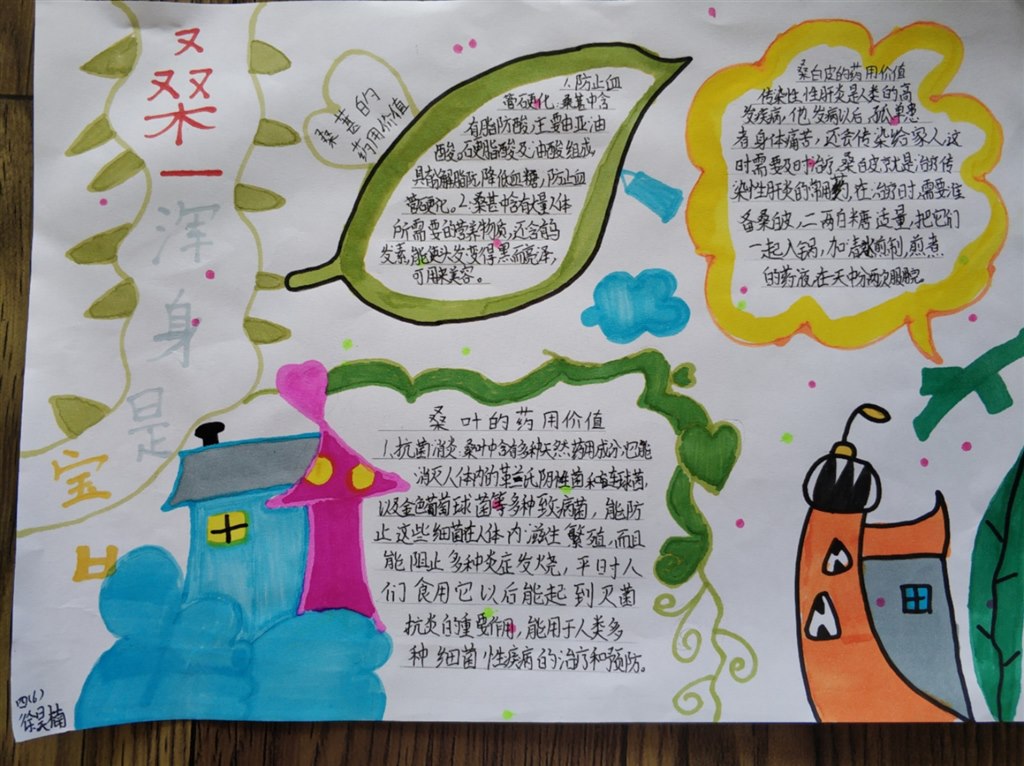 桑
一
浑
身
是
宝
桑葚的
药用价值
1.防止血
管硬化:桑葚中含
有脂肪酸,主要由亚油
酸。硬脂酸及油酸组成,
具有解脂肪,降低血糖,防止血
管硬化。2.桑葚中含有大量人体
所需要的营养物质,还含有乌
发素,能使头发变得黑而亮泽,
可用来美容。
桑白皮的药用价值
传染性,性肝炎是人类的高
发疾病,他,发病以后,孤单患
者身体痛苦,还会传染给家人这
时需要及时治疗,桑白皮就是治疗传
染性肝炎的
在治疗时,需要准
备桑白皮,二两白糖适量,把它们
一起入锅,加清水煎制,煎煮
的药液,在天中分两次服用完
桑叶的药用价值
1.抗菌消炎:桑叶中含有多种天然药用成分,它能
消灭人体内的革兰氏阴性菌和链球菌,
以及金色葡萄球菌等多种致病菌,能防
止这些细菌在人体内滋生繁殖,而且
能阻止多种炎症发烧,平日寸人
们食用它以后能起到灭菌
抗炎的重要作用,能用于人类多
种细菌性疾病的治疗和预防。
四(6)
徐昊楠